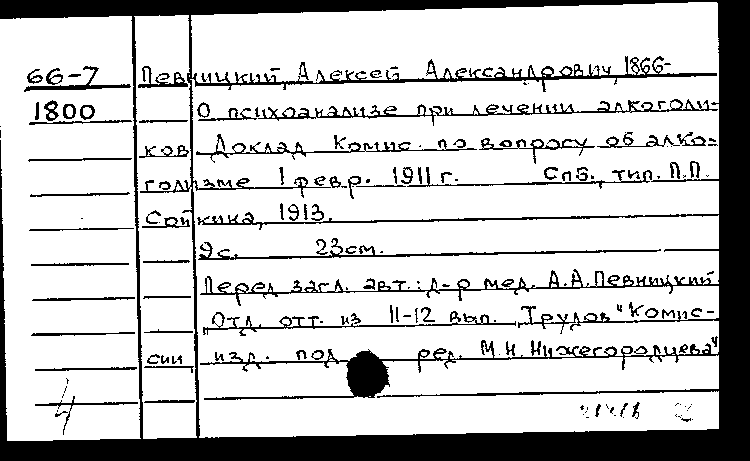 66-7 Певницкий, Алексей Александрович, 1866-
1800 О психоанализе при лечении алкоголи-
ков. Доклад Комис. по вопросу об алко-
голизме 1 февр. 1911 г. Спб., тип. П.П.
Сойкина, 1913.
9с. 23см.
Перед загл. авт.: д-р мед. А.А.Певницкий.
Отд. отт. из 11-12 вып. "Трудов "Комис-
сии, изд. под ред. М.Н.Нижегородцева"
4